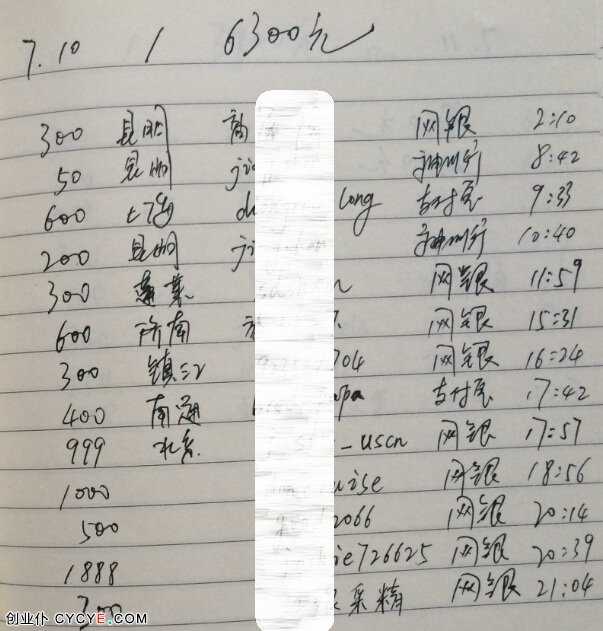 7.10 1 6300元
300 昆明 网银 2:10
50 昆明 ji 神州行 8:42
600 上海 du long 支付宝 9:33
200 昆明 ji 神州行 10:40
300 蓬莱 n 网银 11:59
600 济南 网银 15:31
300 镇江 704 网银 16:24
400 南通 pa 支付宝 17:42
999 北京 _uscn 网银 17:57
1000 uise 网银 18:56
500 2066 网银 20:14
1888 ie726625 网银 20:39
300 采精 网银 21:04
创业仆 CYCYE.COM